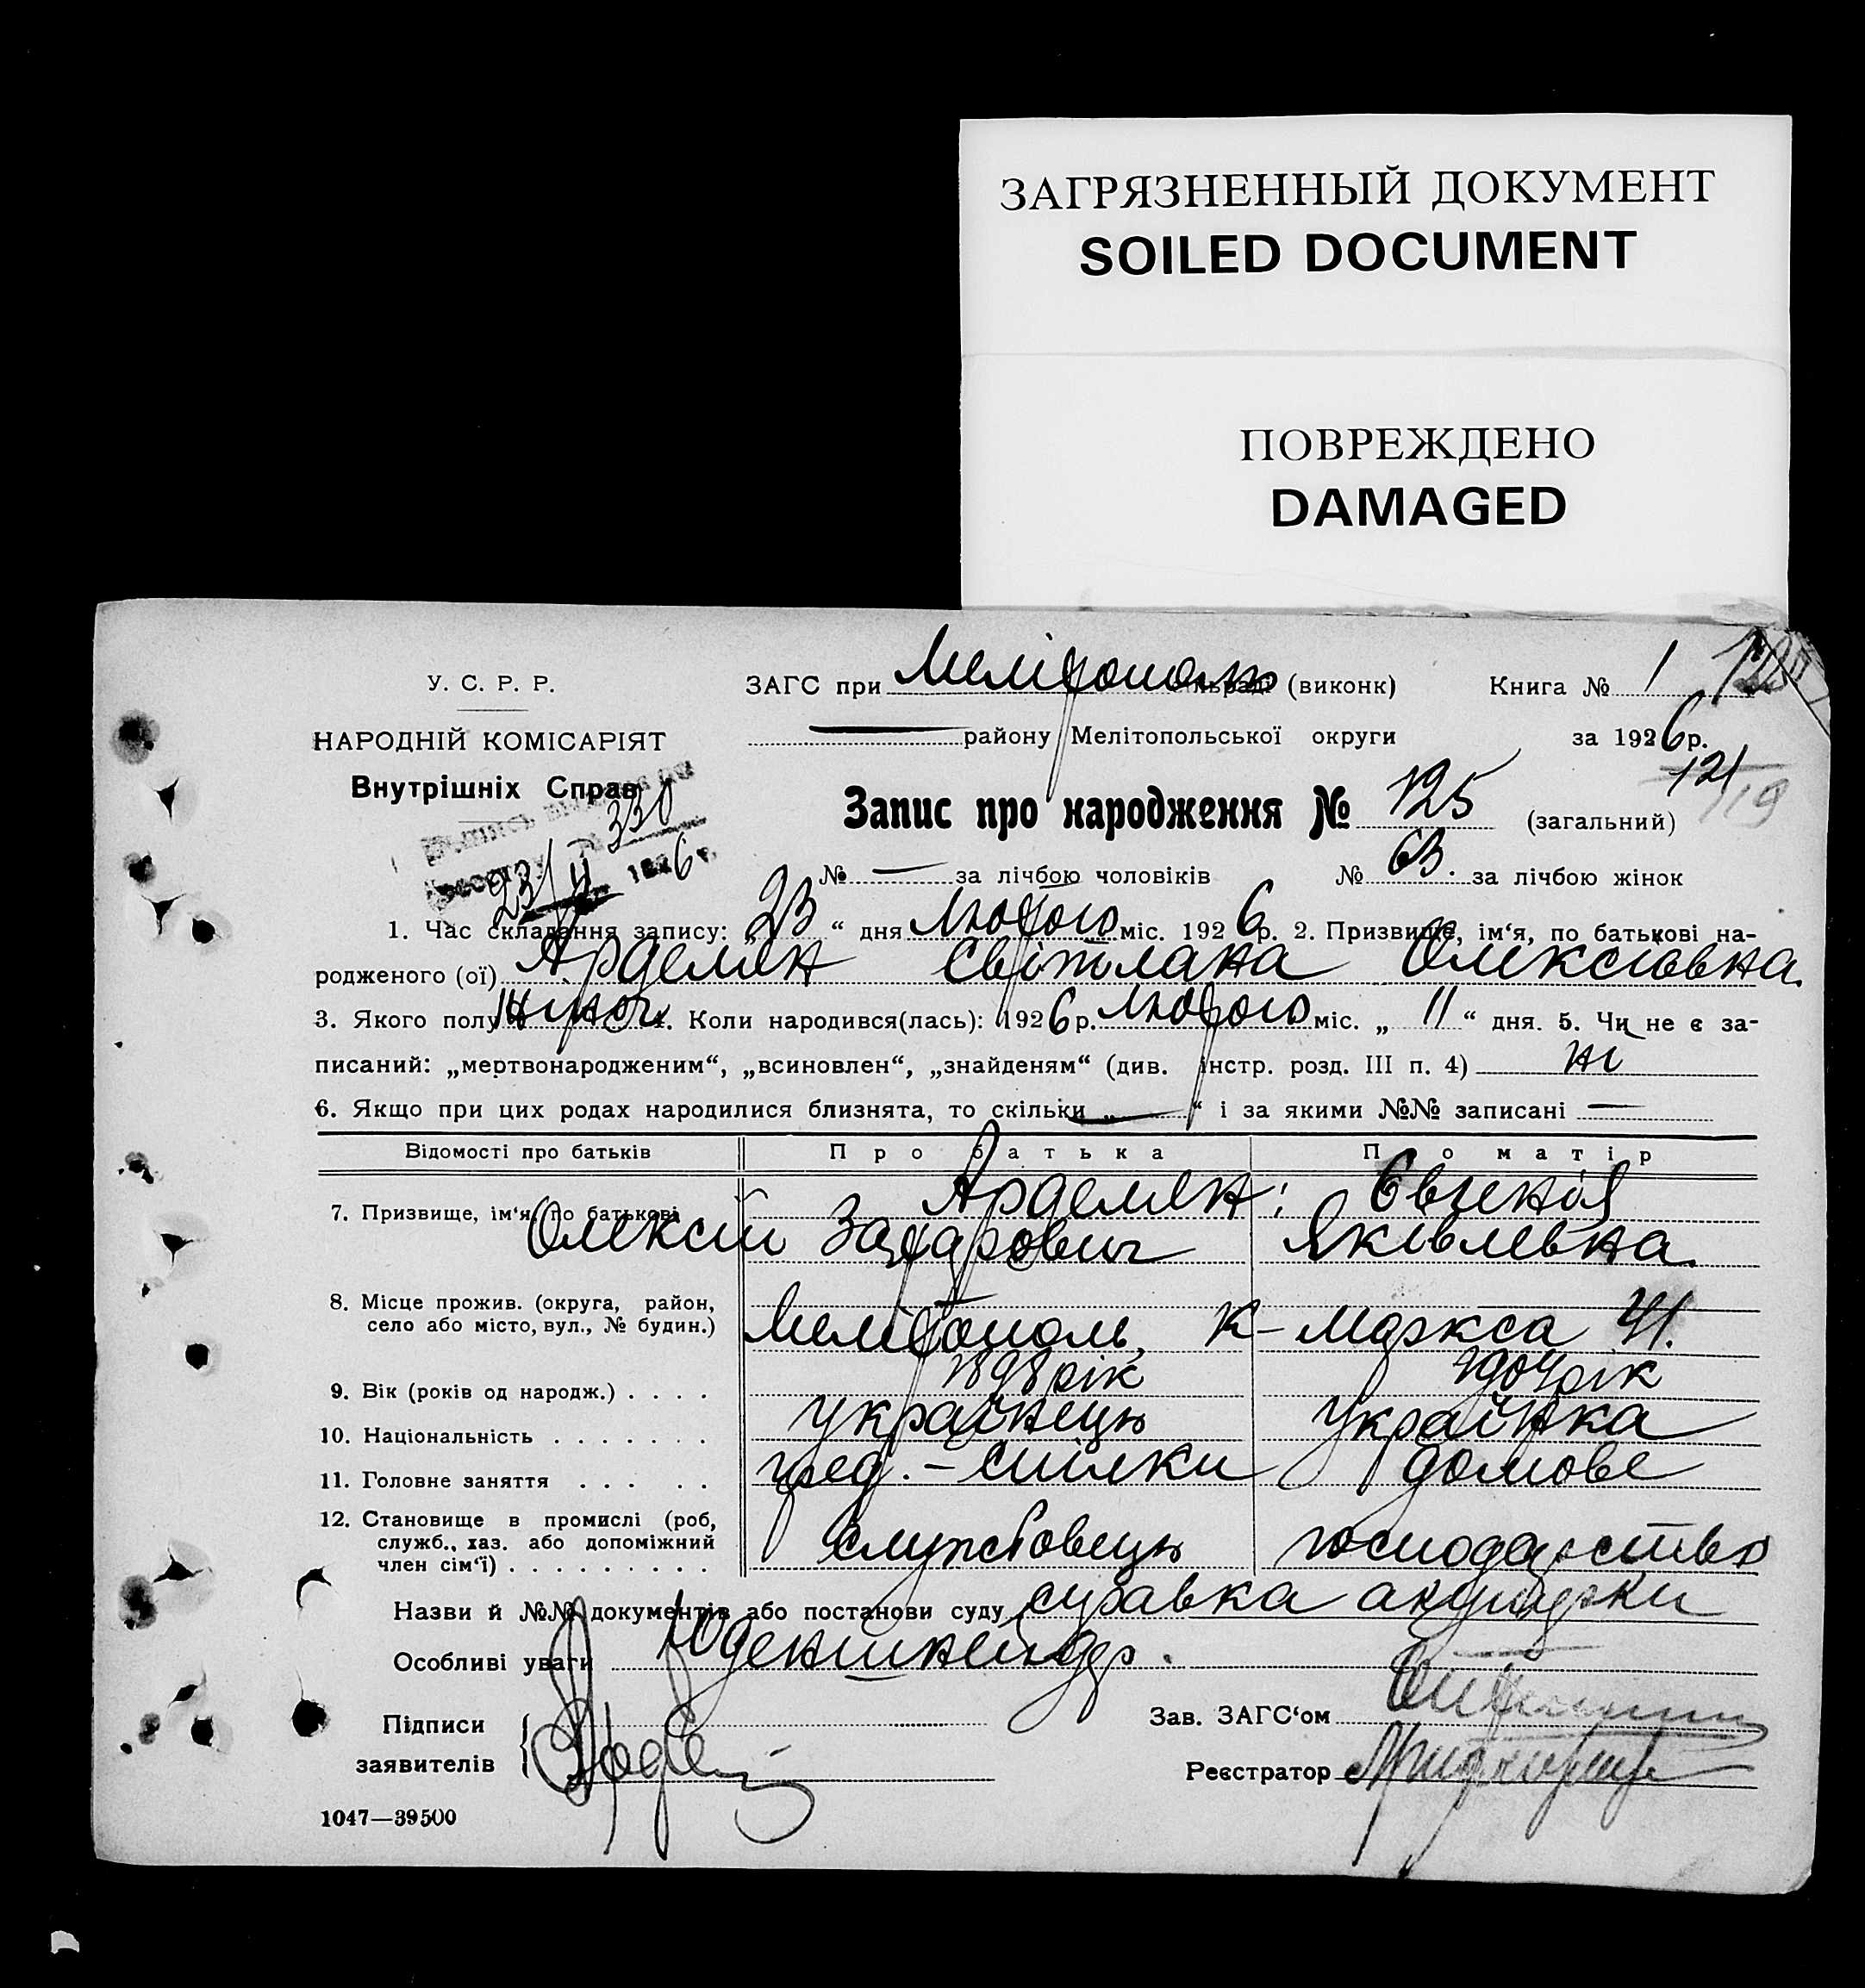 ЗАГРЯЗНЕННЫЙ ДОКУМЕНТ
SOILED DOCUMENT
ПОВРЕЖДЕНО
DAMAGED
У. С. Р. Р.
НАРОДНІЙ КОМІСАРІЯТ
Внутрішніх Справ
330
23/II 1926 р.
ЗАГС при Мелітополь (виконк) Книга № 1
району Мелітопольської округи за 1926 р.
121
119
Запис про народження № 125 (загальний)
№ — за лічбою чоловіків № 63. за лічбою жінок
1. Час складання запису: „23“ дня Лютого міс. 1926 р. 2. Призвище, ім‘я, по батькові на-
родженого (ої) Арделян Світлана Олексіївна.
3. Якого полу жіноч. 4. Коли народився(лась): 1926 р. Лютого міс. „ 11 “ дня. 5. Чи не є за-
писаний: „мертвонародженим“, „всиновлен“, „знайденям“ (див. інстр. розд. III п. 4) ні
6. Якщо при цих родах народилися близнята, то скільки „ — “ і за якими №№ записані —
Відомості про батьків Про батька Про матір
7. Призвище, ім‘я, по батькові Арделян: Євгенія
Олексій Захарович Яківлевна.
8. Місце прожив. (округа, район,
село або місто, вул., № будин.) Мелітополь, К-Маркса 41.
9. Вік (років од народж.) . . . . 1898 рік 1904 рік
10. Національність . . . . . . . українець Українка
11. Головне заняття . . . . . пред.-спілки домове
12. Становище в промислі (роб,
служб., хаз. або допоміжний
член сім‘ї) . . . . . . . . . службовець господарство
Назви й №№ документів або постанови суду справка акушерки
Особливі уваги
Підписи
заявителів
Зав. ЗАГС‘ом
Реєстратор
1047—39500